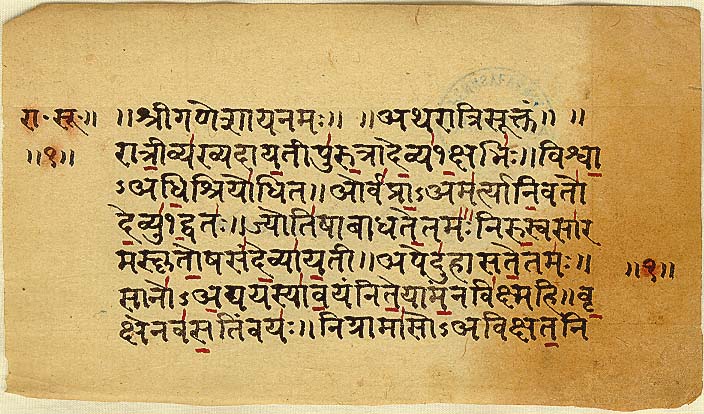 रा॰सू॰॥ ॥श्रीगणेशायनमः॥ ॥अथरात्रिसूक्तं॥ ॥
॥१॥ रात्री॒व्य॑ख्यदाय॒तीपु॑रु॒त्रादे॒व्य१॒॑क्षभिः॑॥विश्वा॒
ऽअधि॒श्रियो॑धित॥ओर्व॑प्रा॒ऽअम॑र्त्यानि॒वतो॑
दे॒व्यु१॒॑द्वतः॑॥ज्योति॑षाबाधते॒तमः॑निरु॒स्वसा॑र
मस्कृतो॒षसं॑दे॒व्या॑य॒ती॥अपेदु॑हासते॒तमः॑॥
॥१॥
सानो॑ऽअ॒द्ययस्या॑व॒यंनिते॒याम॒न्नवि॑क्ष्महि॥वृ॒
क्षेनव॑स॒तिंवयः॑॥निग्रामा॑सोऽअविक्षत॒नि